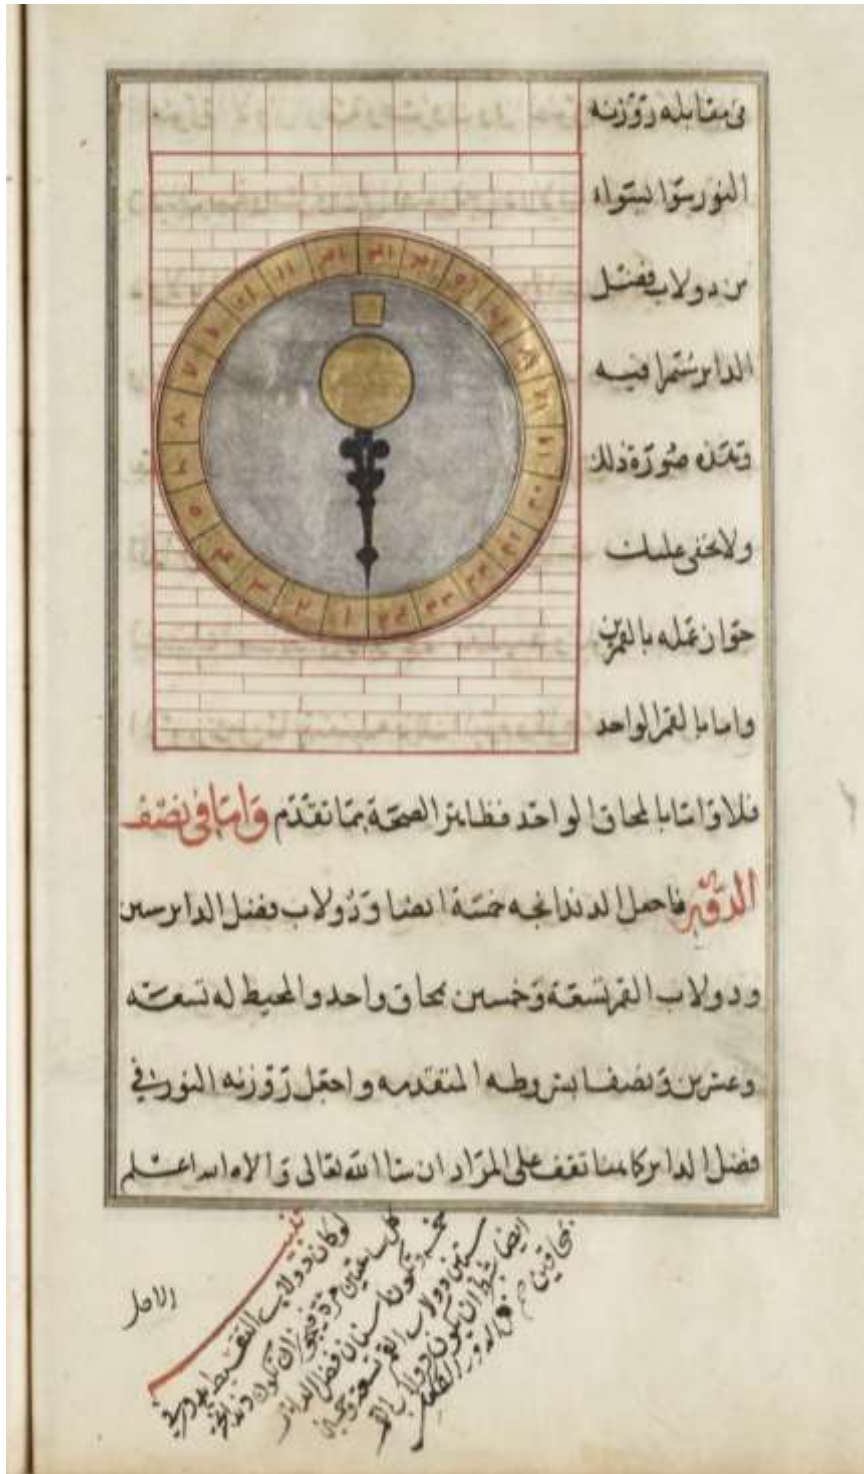 في مقابله روزنه
النور سوا بسواه
من دولاب فضل
الداير ستمرا فيه
وهذه صورة ذلك
ولا يخفى عليك
جواز عمله بالقمرين
واما بالقمر الواحد
فلا واما بالمحاق الواحد فظاهر الصحة بما تقدم واما في نصف
الدور فاجعل الدندانجه خمسة ايضا ودولاب فضل الداير ستين
ودولاب القمر تسعة وخمسين بمحاق واحد والمحيط له تسعة
وعشرين ونصفا بشروطه المتقدمه واجعل روزنه النور في
فضل الداير كامنا تقف على المراد ان شا الله تعالى والاه الله اعلم
تنبيه
لو كان دولاب التقسيط يدور في
كل ساعتين مرة فيجوز ان تكون دندانجته
خمسه وتكون اسنان فضل الداير
ستين ودولاب القمر تسعة وخمسين
ايضا بشرط ان يكون دولاب القمر
بمحاقين صح في الدور
الاول